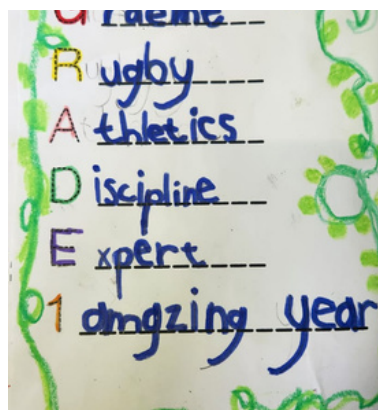 Graeme
Rugby
Athletics
Discipline
Expert
1 amgzing year